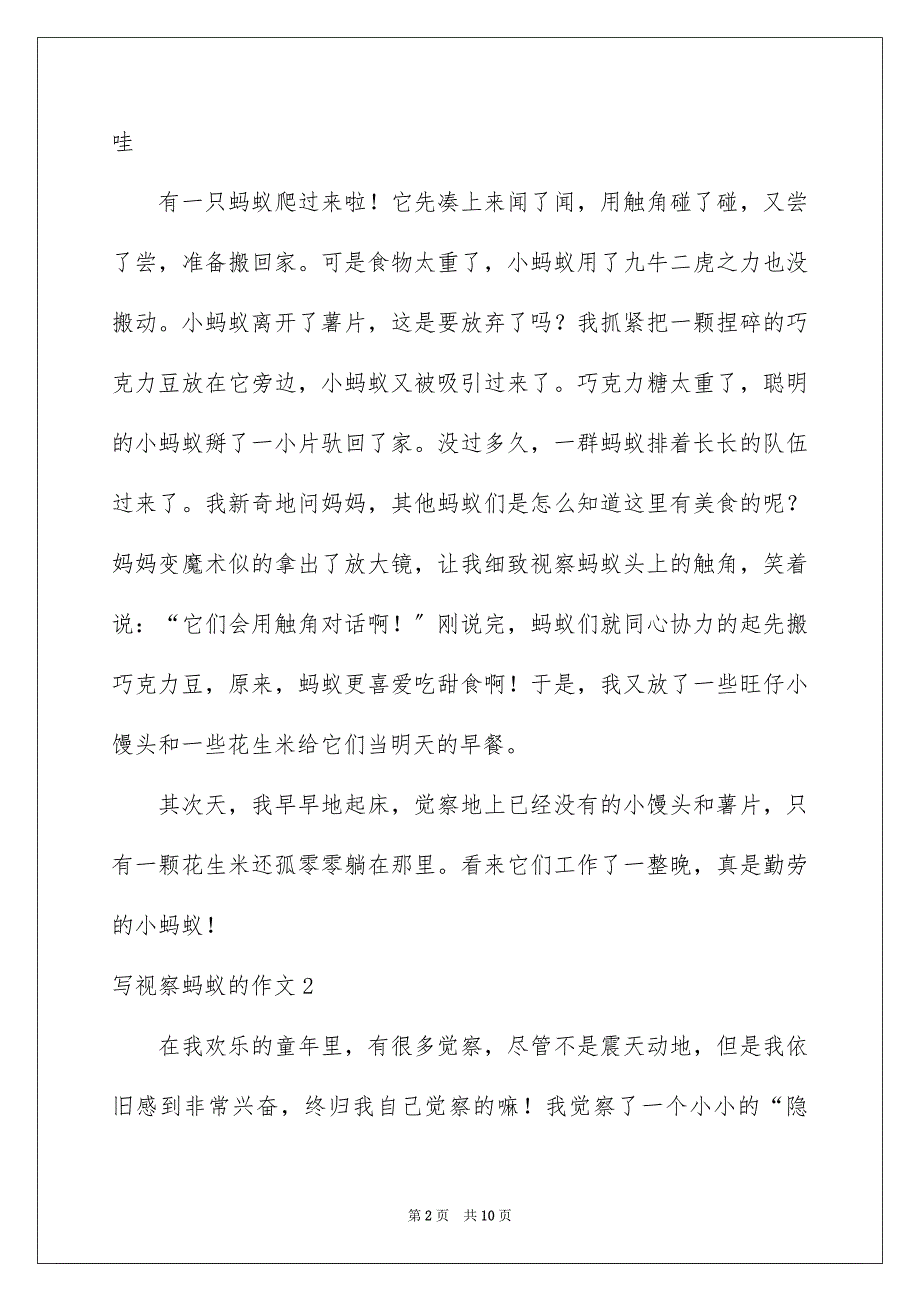 哇
有一只蚂蚁爬过来啦！它先凑上来闻了闻，用触角碰了碰，又尝
了尝，准备搬回家。可是食物太重了，小蚂蚁用了九牛二虎之力也没
搬动。小蚂蚁离开了薯片，这是要放弃了吗？我抓紧把一颗捏碎的巧
克力豆放在它旁边，小蚂蚁又被吸引过来了。巧克力糖太重了，聪明
的小蚂蚁掰了一小片驮回了家。没过多久，一群蚂蚁排着长长的队伍
过来了。我新奇地问妈妈，其他蚂蚁们是怎么知道这里有美食的呢？
妈妈变魔术似的拿出了放大镜，让我细致视察蚂蚁头上的触角，笑着
说：“它们会用触角对话啊！〞刚说完，蚂蚁们就同心协力的起先搬
巧克力豆，原来，蚂蚁更喜爱吃甜食啊！于是，我又放了一些旺仔小
馒头和一些花生米给它们当明天的早餐。
其次天，我早早地起床，觉察地上已经没有的小馒头和薯片，只
有一颗花生米还孤零零躺在那里。看来它们工作了一整晚，真是勤劳
的小蚂蚁！
写视察蚂蚁的作文 2
在我欢乐的童年里，有很多觉察，尽管不是震天动地，但是我依
旧感到非常兴奋，终归我自己觉察的嘛！我觉察了一个小小的“隐
第 2 页 共 10 页